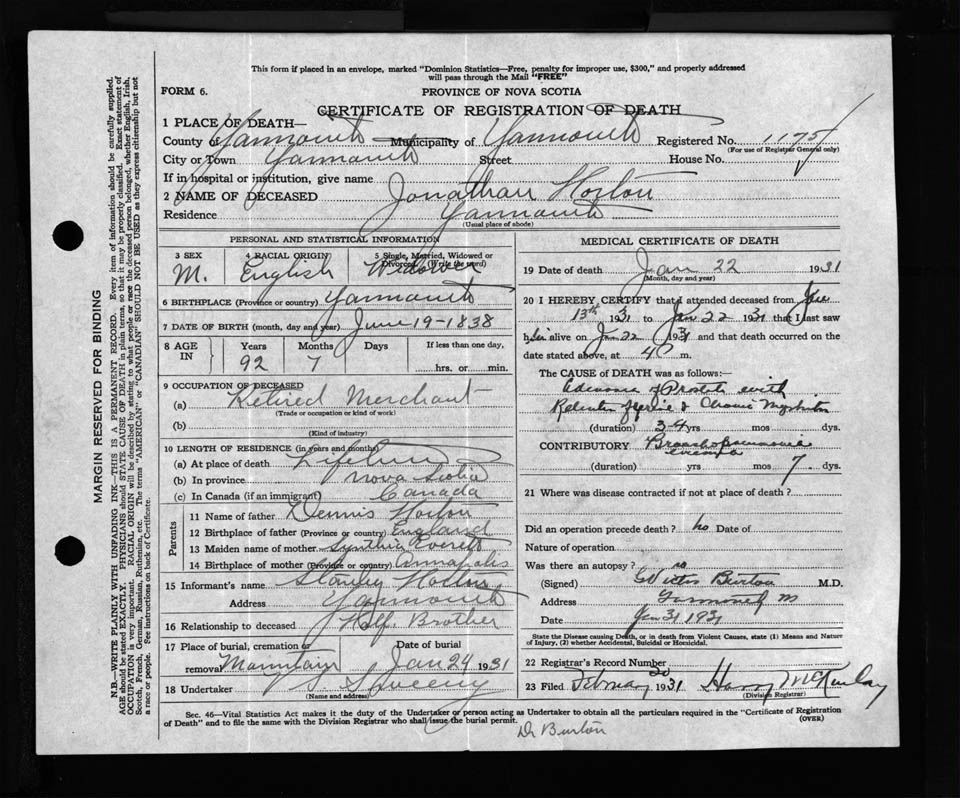 This form if placed in an envelope, marked "Dominion Statistics—Free, penalty for improper use, $300," and properly addressed
will pass through the Mail "FREE"
FORM 6.
PROVINCE OF NOVA SCOTIA
CERTIFICATE OF REGISTRATION OF DEATH
1 PLACE OF DEATH—
County of Yarmouth Municipality of Yarmouth Registered No. 1175
(For use of Registrar General only)
City or Town Yarmouth Street House No.
If in hospital or institution, give name
2 NAME OF DECEASED Jonathan Horton
Residence Yarmouth
(Usual place of abode)
PERSONAL AND STATISTICAL INFORMATION
3 SEX 4 RACIAL ORIGIN 5 Single, Married, Widowed or
Divorced (Write the word)
M. English Widower
6 BIRTHPLACE (Province or country) Yarmouth
7 DATE OF BIRTH (month, day and year) June 19-1838
8 AGE IN Years Months Days If less than one day,
92 7 hrs. or min.
9 OCCUPATION OF DECEASED
(a) Retired Merchant
(Trade or occupation or kind of work)
(b)
(Kind of industry)
10 LENGTH OF RESIDENCE (in years and months)
(a) At place of death Lifetime
(b) In province Nova Scotia
(c) In Canada (if an immigrant) Canada
Parents
11 Name of father Dennis Horton
12 Birthplace of father (Province or country) England
13 Maiden name of mother Synthia Everett
14 Birthplace of mother (Province or country) Annapolis
15 Informant's name Stanley Horton
Address Yarmouth
16 Relationship to deceased Half Brother
17 Place of burial, cremation or Date of burial
removal Mountain Jan 24 1931
18 Undertaker V S Sweeny
(Name and address)
MEDICAL CERTIFICATE OF DEATH
19 Date of death Jan 22 1931
(Month, day and year)
20 I HEREBY CERTIFY that I attended deceased from Jan
13th 1931 to Jan 22 1931 that I last saw
him alive on Jan 22 1931 and that death occurred on the
date stated above, at 4 m.
The CAUSE of DEATH was as follows:
Adenoma of Prostate with
Retention of Urine & Chronic
(duration) yrs mos dys.
CONTRIBUTORY Bronchopneumonia
(duration) yrs mos 7 dys.
21 Where was disease contracted if not at place of death?
Did an operation precede death? no Date of
Nature of operation
Was there an autopsy? no
(Signed) Burton M.D.
Address Yarmouth
Date Jan 31 1931
State the Disease causing Death, or in death from Violent Causes, state (1) Means and Nature
of Injury, (2) whether Accidental, Suicidal or Homicidal.
22 Registrar's Record Number
23 Filed February 20 1931 Harry McKinlay
(Division Registrar)
Sec. 46—Vital Statistics Act makes it the duty of the Undertaker or person acting as Undertaker to obtain all the particulars required in the "Certificate of Registration
of Death" and to file the same with the Division Registrar who shall issue the burial permit. (OVER)
Dr Burton
MARGIN RESERVED FOR BINDING
N.B.—WRITE PLAINLY WITH UNFADING INK—THIS IS A PERMANENT RECORD. Every item of information should be carefully supplied.
AGE should be stated EXACTLY. PHYSICIANS should STATE CAUSE OF DEATH in plain terms, so that it may be properly classified. Exact statement of
OCCUPATION is very important. RACIAL ORIGIN will be described by stating to what people or race the deceased person belonged, whether English, Irish,
Scotch, French, German, Russian, Ruthenian, etc. The terms "AMERICAN" or "CANADIAN" SHOULD NOT BE USED as they express citizenship but not
a race or people. See instructions on back of Certificate.